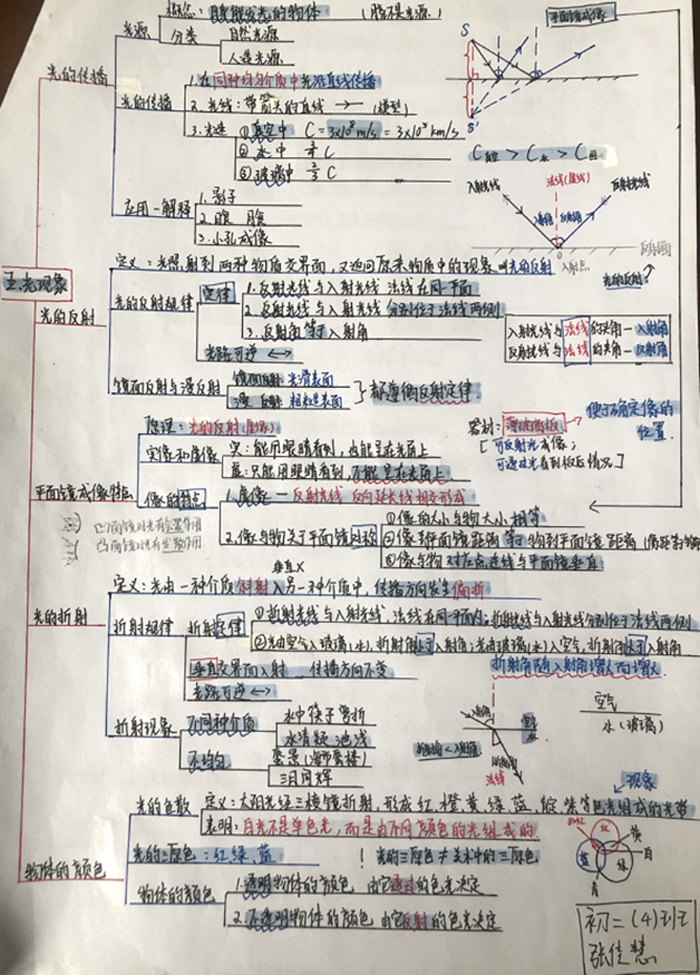 概念：自身能发光的物体 (月亮不是光源)
平面镜成像
光源
分类 自然光源
人造光源
光的传播
1.在同种均匀介质中光沿直线传播
光的传播
2.光线：带箭头的直线 → (模型)
3.光速 ①真空中 C=3×10⁸m/s=3×10⁵km/s
②水中 3/4 C
③玻璃中 2/3 C
S
S'
C真空 > C水 > C固
应用-解释
1.影子
2.日食 月食
3.小孔成像
入射光线
法线(虚线)
反射光线
入射角 反射角
O
入射点
反射面
光的反射
五.光现象
定义：光照射到两种物质交界面，又返回原来物质中的现象叫光的反射
光的反射
光的反射规律
定律
1.反射光线与入射光线 法线在同一平面
2.反射光线与入射光线 分别位于法线两侧
3.反射角等于入射角
光路可逆 ↔
入射光线与法线的夹角-入射角
反射光线与法线的夹角-反射角
镜面反射与漫反射
镜面反射:光滑表面
漫反射:粗糙表面
}都遵循反射定律
平面镜成像特点
原理：光的反射(虚像)
实像和虚像
实：能用眼睛看到，也能呈在光屏上
虚：只能用眼睛看到，不能呈在光屏上
器材：薄玻璃板
便于确定像的
位置
[可反射光成像；
可透过光看到板后情况]
像的特点
1.虚像-反射光线 反向延长线相交形成
2.像与物关于平面镜对称
①像的大小与物大小相等
②像到平面镜距离 等于物到平面镜距离
③像与物对应点连线与平面镜垂直
凹面镜对光有会聚作用
凸面镜对光有发散作用
垂直×
定义：光由一种介质斜射入另一种介质中，传播方向发生偏折
光的折射
折射规律
折射定律
①折射光线与入射光线，法线在同一平面内；折射光线与入射光线分别位于法线两侧
②光由空气入玻璃(水)，折射角小于入射角；光由玻璃(水)入空气，折射角大于入射角
折射角随入射角增大而增大
垂直交界面入射 传播方向不变
光路可逆↔
折射现象
不同种介质
水中筷子弯折
水清疑池浅
不均匀
蜃景(海市蜃楼)
三日同辉
入射角
空气
水
折射角<入射角
折射角
法线
空气
水(玻璃)
现象
光的色散
定义：太阳光经三棱镜折射，形成红、橙、黄、绿、蓝、靛、紫等色光组成的光带
表明：白光不是单色光，而是由不同颜色的光组成的
物体的颜色
光的三原色：红、绿、蓝
! 光的三原色≠美术中的三原色
物体的颜色
1.透明物体的颜色 由它透过的色光决定
2.不透明物体的颜色 由它反射的色光决定
红
蓝
绿
黄
白
青
初二(4)班
张佳慧